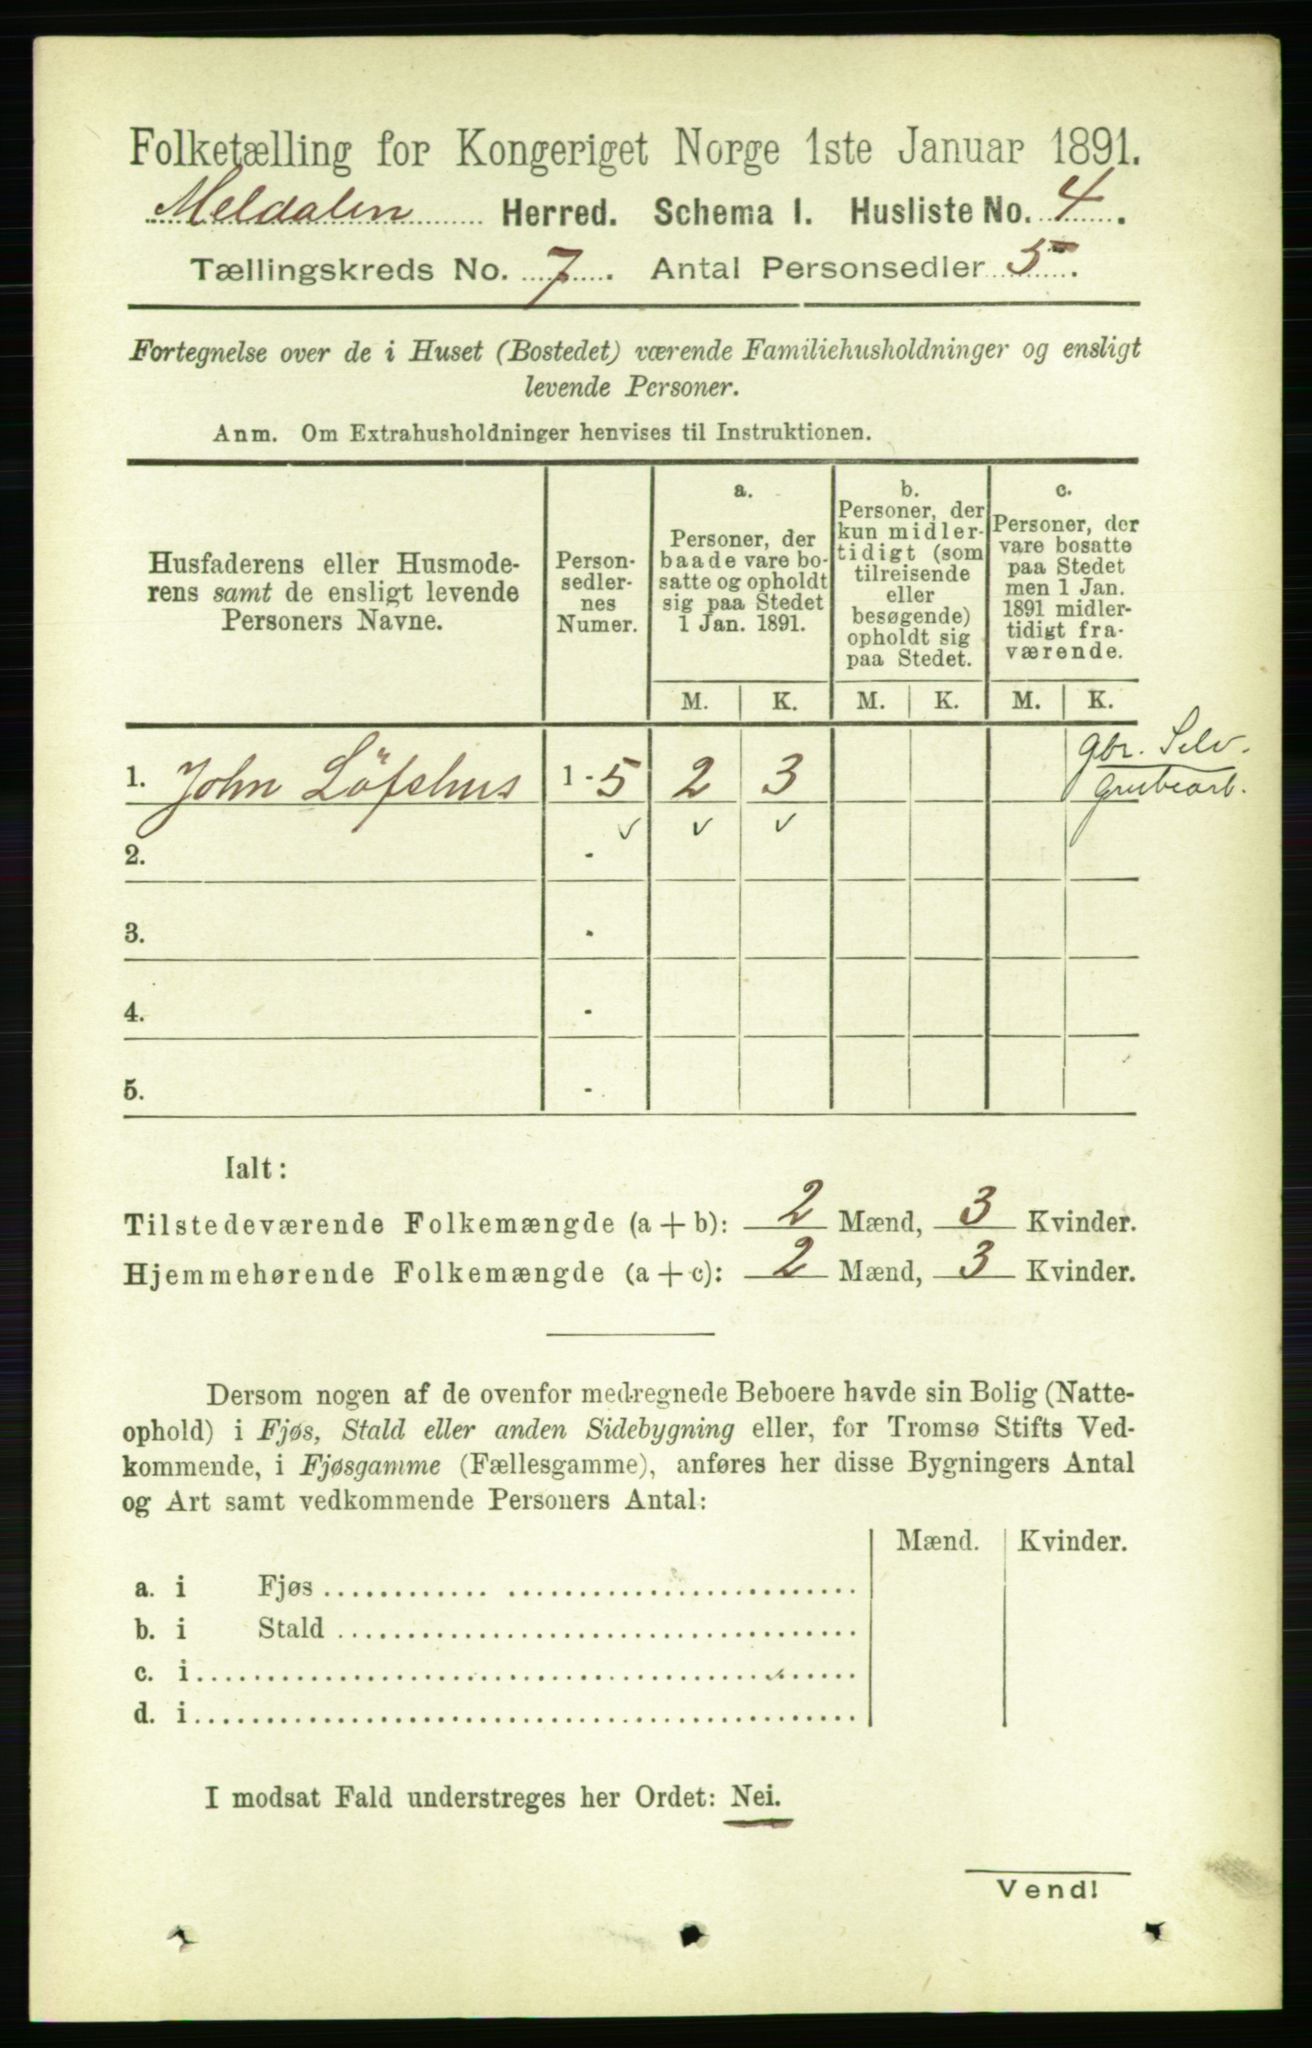 Folketælling for Kongeriget Norge 1ste Januar 1891.
Meldalen Herred. Schema I. Husliste No. 4.
Tællingskreds No. 7. Antal Personsedler 5.
Fortegnelse over de i Huset (Bostedet) værende Familiehusholdninger og ensligt
levende Personer.
Anm. Om Extrahusholdninger henvises til Instruktionen.
Husfaderens eller Husmode-
rens samt de ensligt levende
Personers Navne.
Person-
sedler-
nes
Numer.
a.
Personer, der
baade vare bo-
satte og opholdt
sig paa Stedet
1 Jan. 1891.
b.
Personer, der
kun midler-
tidigt (som
tilreisende
eller
besøgende)
opholdt sig
paa Stedet.
c.
Personer, der
vare bosatte
paa Stedet
men 1 Jan.
1891 midler-
tidigt fra-
værende.
M. K. M. K. M. K.
gbr. Selv.
1. John Löfshus 1 - 5 2 3
Grubearb.
2. -
3. -
4. -
5. -
Ialt:
Tilstedeværende Folkemængde (a + b): 2 Mænd, 3 Kvinder.
Hjemmehørende Folkemængde (a + c): 2 Mænd, 3 Kvinder.
Dersom nogen af de ovenfor medregnede Beboere havde sin Bolig (Natte-
ophold) i Fjøs, Stald eller anden Sidebygning eller, for Tromsø Stifts Ved-
kommende, i Fjøsgamme (Fællesgamme), anføres her disse Bygningers Antal
og Art samt vedkommende Personers Antal:
Mænd. Kvinder.
a. i Fjøs
b. i Stald
c. i
d. i
I modsat Fald understreges her Ordet: Nei.
Vend!